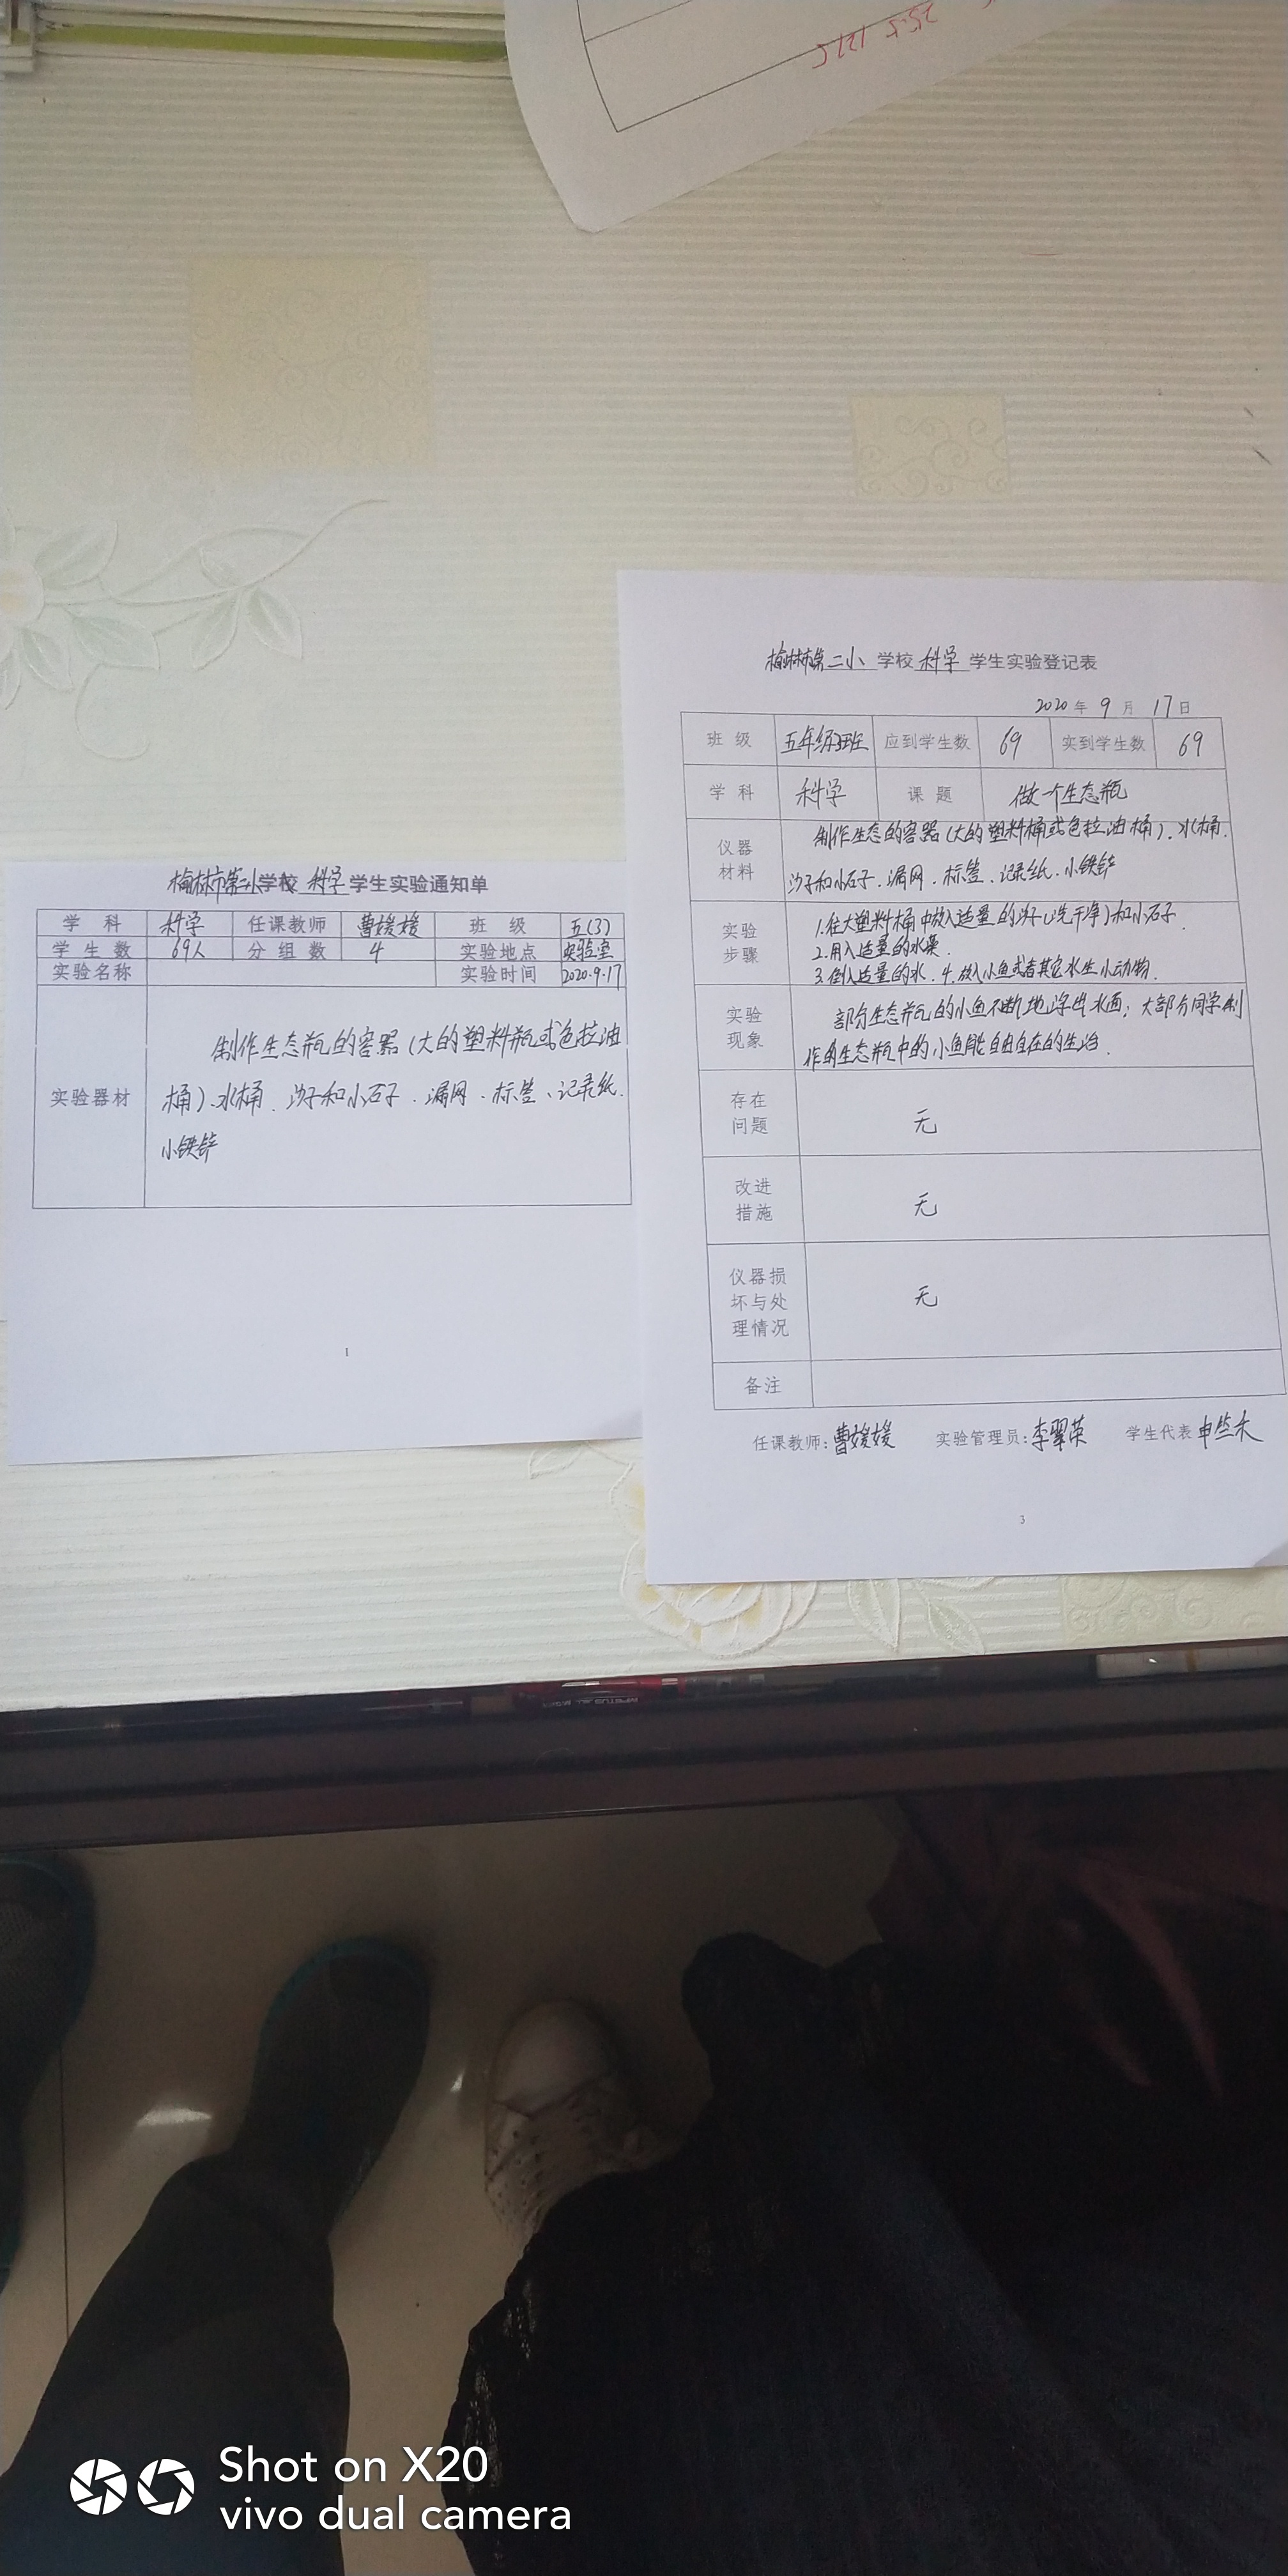 榆林市第二小学校 科学 学生实验通知单
学 科 科学 任课教师 曹媛媛 班 级 五(3)
学生数 69人 分组数 4 实验地点 实验室
实验名称 实验时间 2020.9.17
实验器材
制作生态瓶的容器(大的塑料瓶或色拉油
桶)、水桶、沙子和小石子、漏网、标签、记录纸、
小铁锌
1
榆林市第二小 学校 科学 学生实验登记表
2020 年 9 月 17 日
班 级 五年级3班 应到学生数 69 实到学生数 69
学 科 科学 课 题 做一个生态瓶
仪器
材料
制作生态的容器(大的塑料桶或色拉油桶)、水桶、
沙子和小石子、漏网、标签、记录纸、小铁锌
实验
步骤
1.在大塑料桶中放入适量的沙子(洗干净)和小石子.
2.用入适量的水藻.
3.倒入适量的水. 4.放入小鱼或者其它水生小动物.
实验
现象
部分生态瓶的小鱼不断地浮出水面; 大部分同学制
作的生态瓶中的小鱼能自由自在的生活.
存在
问题
无
改进
措施
无
仪器损
坏与处
理情况
无
备注
任课教师: 曹媛媛 实验管理员: 李翠荣 学生代表
3
Shot on X20
vivo dual camera